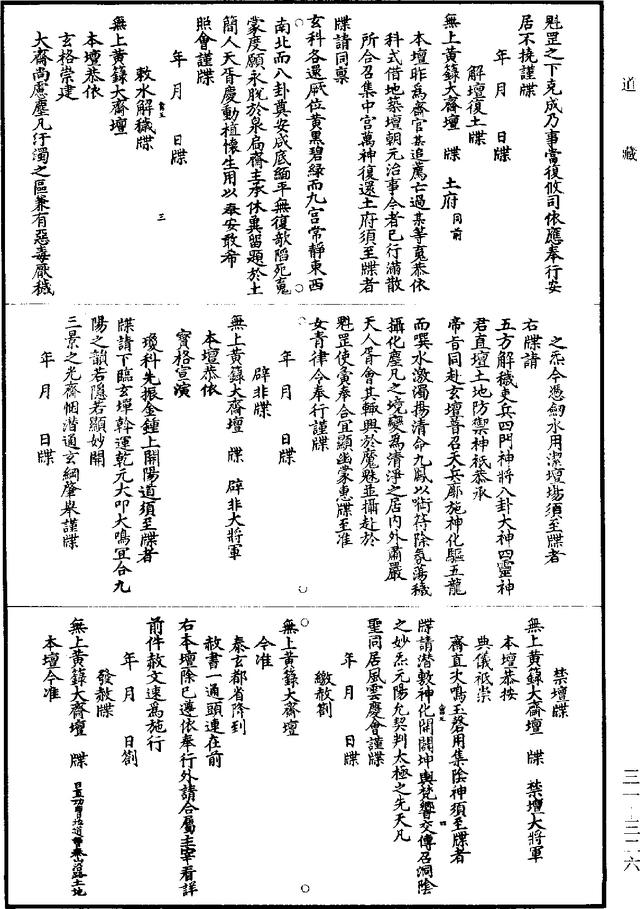 道藏
魁罡之下克成乃事當復攸司依應奉行安
居不撓謹牒
年 月 日牒
解壇復土牒
無上黃籙大齋壇 牒 土府同前
本壇昨為齋官某追薦亡過某等䰟恭依
科式借地築壇朝元治事今者已行滿散
所合召集中宮萬神復還土府須至牒者
牒請同稟
玄科各還厥位黃黑碧綠而九宮常靜東西
南北而八卦奠安咸底緬平無復欹陷死䰟
蒙慶願永脫於泉扃齋主承休冀留題於土
簡人天胥慶動植懷生用以奉安敢希
照會謹牒
年 月 日牒
三
敕水解穢牒
無上黃籙大齋壇
本壇恭依
玄格崇建
大齋尚慮塵凡汙濁之區兼有惡毒厭穢
之炁今憑劒水用潔壇場須至牒者
右牒請
五方解穢吏兵四門神將八卦大神四靈神
君直壇土地防禦神祇恭承
帝旨同赴玄壇普召天兵廓施神化驅五龍
而噀水激濁揚清命九鳳以銜符除氛蕩穢
攝化塵凡之境變為清淨之居內外肅嚴
天人胥會其輒興於魔魅並攝赴於
魁罡使僉奉合宜顯幽蒙惠牒至准
女青律令奉行謹牒
年 月 日牒
辟非牒
無上黃籙大齋壇 牒 辟非大將軍
本壇恭依
寶格宣演
瓊科先振金鍾上開陽道須至牒者
牒請下臨玄墠斡運乾元大叩大鳴宜合九
陽之韻若隱若顯妙開
三景之光齋悃潛通玄綱肇舉謹牒
年 月 日牒
禁壇牒
無上黃籙大齋壇 牒 禁壇大將軍
本壇恭按
典儀祇崇
齋直大鳴玉磬用集陰神須至牒者
四
牒請潛敷神化開闢坤輿梵響交傳召洞陰
之妙炁元陽允契判太極之先天凡
聖同居風雲慶會謹牒
年 月 日牒
繳赦劄
無上黃籙大齋壇
今准
泰玄都省降到
赦書一通頭連在前
右本壇除已遵依奉行外請合屬主宰看詳
前件赦文速為施行
年 月 日劄
發赦牒
無上黃籙大齋壇 牒 日直功曹
本壇今准
三一—三二六